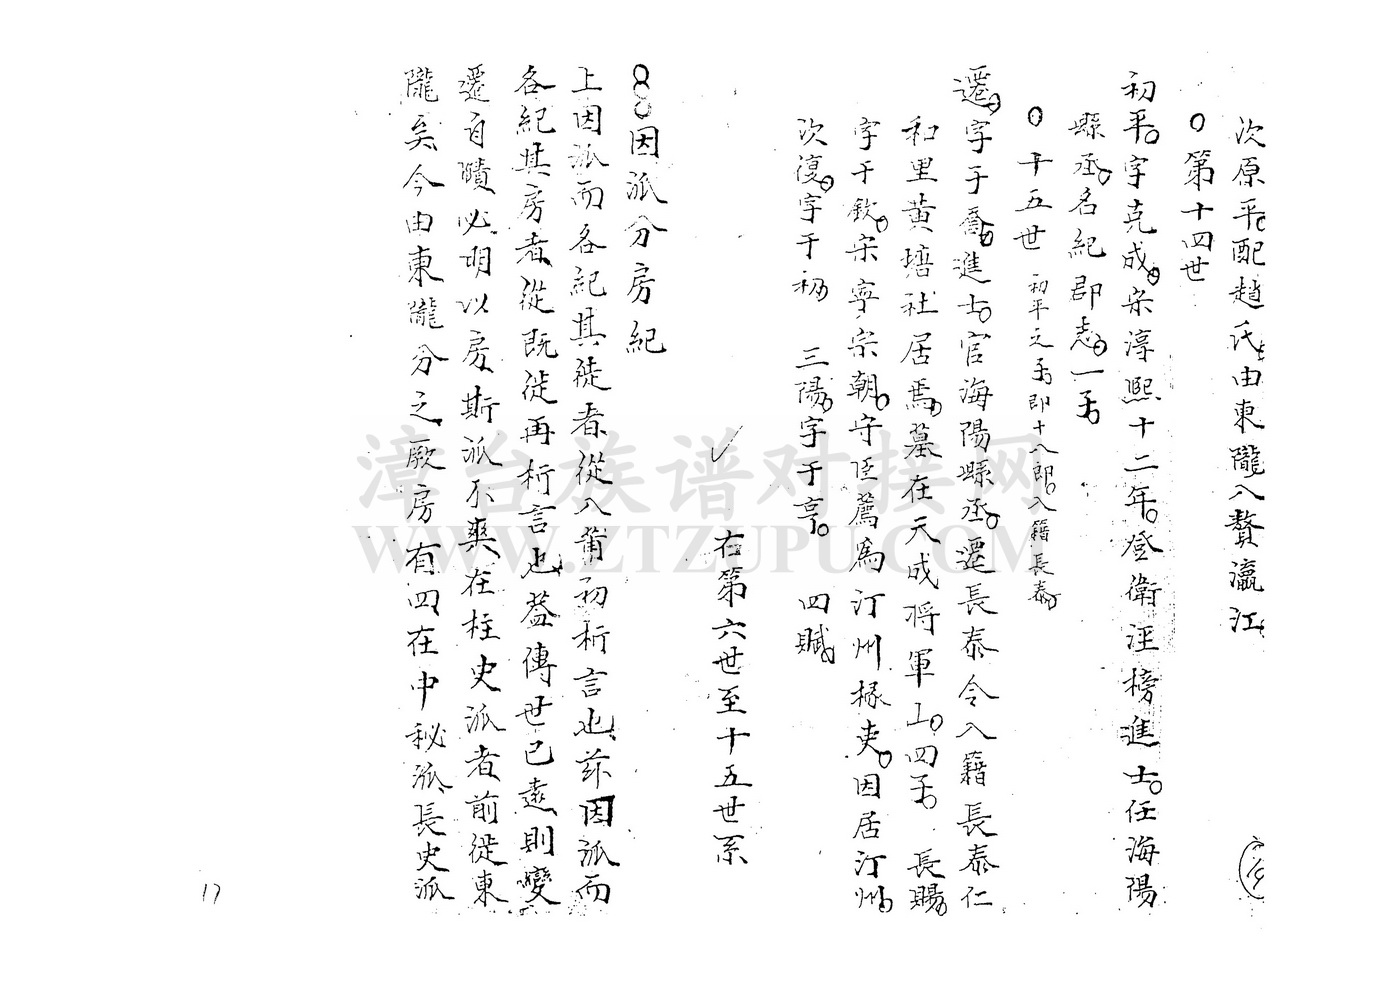 次原平配趙氏由東隴入贅瀛江
○第十四世
初平字克成宋淳熙十二年登衛涇榜進士任海陽
縣丞名紀郡志一子
○十五世 初平之子即十八郎入籍長泰
遷字于喬進士官海陽縣丞遷長泰令入籍長泰仁
和里黄塘社居焉墓在天成將軍山四子 長賜
字于欽宋寧宗朝守臣薦為汀州掾吏因居汀州
次復字于初 三陽字于亨 四賦
右第六世至十五世系
因派分房紀
上因派而各紀其徙者從入莆初析言也茲因派而
各紀其房者從既徙再析言也蓋傳世已遠則變
遷自賾必明以房斯派不爽在柱史派者前徙東
隴矣今由東隴分之厥房有四在中秘派長史派
17
漳台族谱对接网
WWW.ZTZUPU.COM